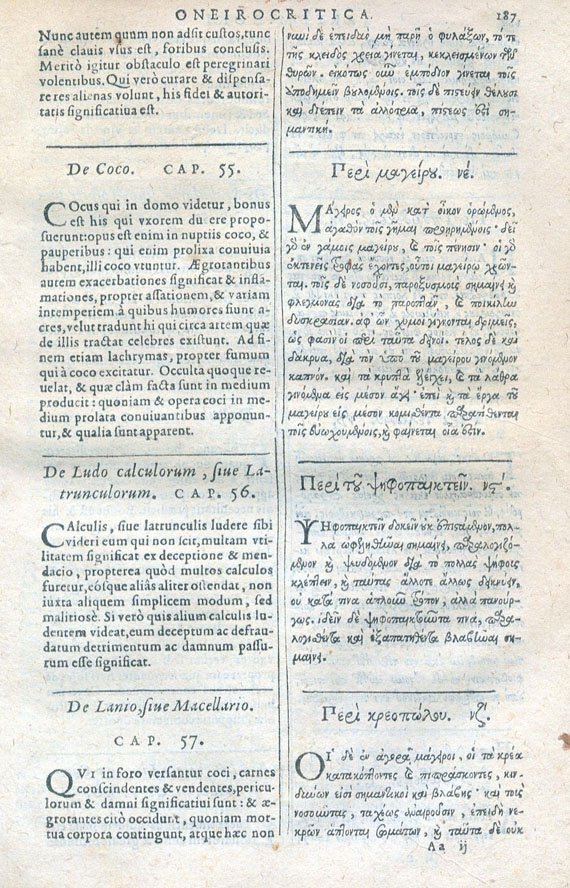 ONEIROCRITICA.
187
Nunc autem quum non adsit custos, tunc
sanè clauis vsus est, foribus conclusis.
Meritò igitur obstaculo est peregrinari
volentibus. Qui verò curare & dispensa-
re res alienas volunt, his fidei & autori-
tatis significatiua est.
De Coco. CAP. 55.
COcus qui in domo videtur, bonus
est his qui vxorem ducere propo-
suerunt: opus est enim in nuptiis coco, &
pauperibus: qui enim prolixa conuiuia
habent, illi coco vtuntur. Ægrotantibus
autem exacerbationes significat & infla-
mationes, propter assationem, & variam
intemperiem à quibus humores fiunt a-
cres, velut tradunt hi qui circa artem quæ
de illis tractat celebres existunt. Ad fi-
nem etiam lachrymas, propter fumum
qui à coco excitatur. Occulta quoque re-
uelat, & quæ clàm facta sunt in medium
producit: quoniam & opera coci in me-
dium prolata conuiuantibus apponun-
tur, & qualia sunt apparent.
De Ludo calculorum, siue La-
trunculorum. CAP. 56.
CAlculis, siue latrunculis ludere sibi
videri eum qui non scit, multam vti-
litatem significat ex deceptione & men-
dacio, propterea quòd multos calculos
furetur, eósque aliàs aliter ostendat, non
iuxta aliquem simplicem modum, sed
malitiosè. Si verò quis alium calculis lu-
dentem videat, eum deceptum ac defrau-
datum detrimentum ac damnum passu-
rum esse significat.
De Lanio, siue Macellario.
CAP. 57.
QVI in foro versantur coci, carnes
conscindentes & vendentes, pericu-
lorum & damni significatiui sunt: & æ-
grotantes citò occidunt, quoniam mor-
tua corpora contingunt, atque hæc non
δὲ ἐπειδὰν μὴ παρῇ ὁ φυλάξων, τό τε
τῆς κλειδὸς χρεία γίνεται, κεκλεισμένων τῶν
θυρῶν. εἰκότως οὖν ἐμπόδιον γίνεται τοῖς
ἀποδημεῖν βουλομένοις. τοῖς δὲ πιστευθῆναι θέλουσι
καὶ διέπειν τὰ ἀλλότρια, πίστεως ἐστὶ ση-
μαντική.
Περὶ μαγείρου. νέ.
ΜΆγειρος ὁ μὲν κατ' οἶκον ὁρώμενος,
ἀγαθὸν τοῖς γῆμαι προῃρημένοις· δεῖ
γὸ ἐν γάμοις μαγείρου, καὶ τοῖς πένησιν· οἱ γὸ
ἐκτενεῖς τροφὰς ἔχοντες, οὗτοι μαγείρῳ χρῶν-
ται. τοῖς δὲ νοσοῦσι, παροξυσμοὺς σημαίνει καὶ
φλεγμονὰς διὰ τὸ καὶ ποικίλην
δυσκρασίαν. ἀφ' ὧν χυμοὶ γίνονται δριμεῖς,
ὥς φασιν οἱ περὶ ταῦτα δεινοί. τέλος δὲ καὶ
δάκρυα, διὰ τὸν ὑπὸ τοῦ μαγείρου γινόμενον
καπνόν. καὶ τὰ κρυπτὰ ἐλέγχει, καὶ τὰ λάθρα
γινόμενα εἰς μέσον ἄγει· ἐπεὶ καὶ τὰ ἔργα τοῦ
μαγείρου εἰς μέσον κομισθέντα παρατίθενται
τοῖς εὐωχουμένοις, καὶ φαίνεται οἷα ἐστίν.
Περὶ τοῦ ψηφοπαικτεῖν. νϛ'.
ΨΗφοπαικτεῖν δοκεῖν οὐκ ἐπιστάμενον, πολ-
λὰ ὠφεληθῆναι σημαίνει, παραλογιζό-
μενον καὶ ψευδόμενον διὰ τὸ πολλὰς ψήφους
κλέπτειν, καὶ ταύτας ἄλλοτε ἄλλως δεικνύειν,
οὐ κατά τινα ἁπλοῦν τρόπον, ἀλλὰ πανούρ-
γως. ἰδεῖν δὲ ψηφοπαικτοῦντά τινα, παρα-
λογισθέντα καὶ ἐξαπατηθέντα βλαβῆναι ση-
μαίνει.
Περὶ κρεοπώλου. νζ'.
ΟἹ δὲ ἐν ἀγορᾷ μάγειροι, οἱ τὰ κρέα
κατακόπτοντες καὶ πιπράσκοντες, κιν-
δύνων εἰσὶ σημαντικοὶ καὶ βλάβης· καὶ τοὺς
νοσοῦντας, ταχέως ἀναιροῦσιν, ἐπειδὴ νε-
κρῶν ἅπτονται σωμάτων, καὶ ταῦτα δὲ οὐκ
Aa ij